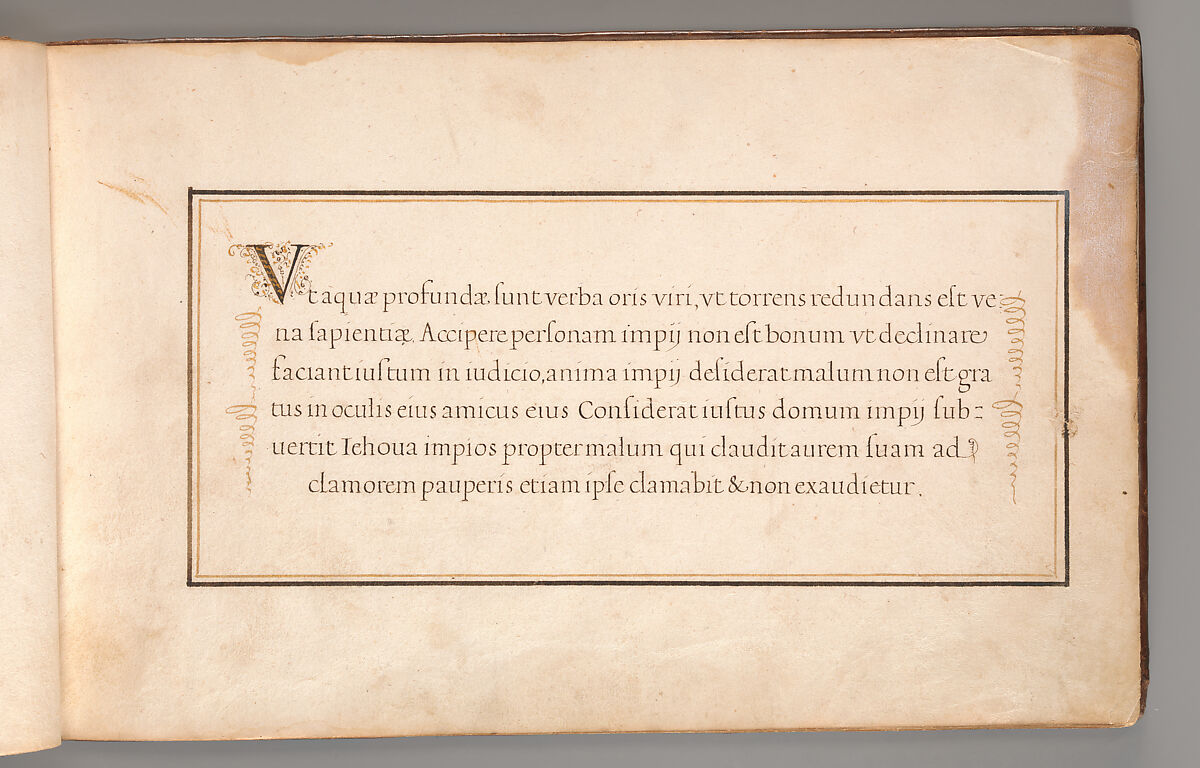 Vt aquæ profundæ ſunt verba oris viri, vt torrens redundans eſt ve-
na ſapientiæ. Accipere perſonam impij non eſt bonum vt declinare
faciant iuſtum in iudicio, anima impij deſiderat malum non eſt gra
tus in oculis eius amicus eius Conſiderat iuſtus domum impij ſub=
uertit Iehoua impios propter malum qui claudit aurem ſuam ad
clamorem pauperis etiam ipſe clamabit & non exaudietur.